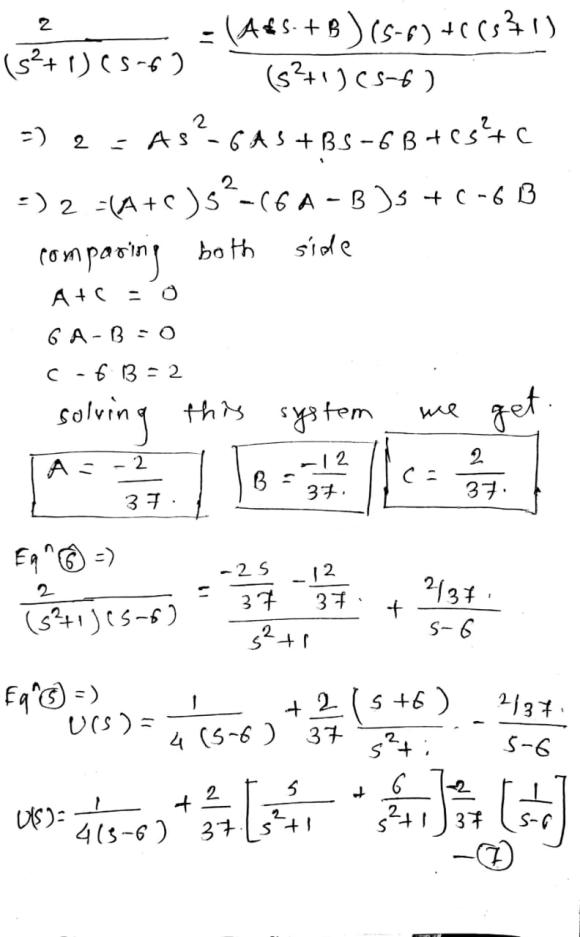 2/((s²+1)(s-6)) = ((As+B)(s-6)+C(s²+1))/((s²+1)(s-6))
=) 2 = As²-6AS+BS-6B+Cs²+C
=) 2 =(A+C)s²-(6A-B)s+C-6B
comparing both side
A+C = 0
6A-B=0
C-6B=2
solving this system we get.
A = -2/37. B = -12/37. C = 2/37.
Eqⁿ⑥ =)
2/((s²+1)(s-6)) = (-2s/37 -12/37.)/(s²+1) + (2/37.)/(s-6)
Eqⁿ⑤ =)
U(s) = 1/(4(s-6)) + 2/37 (s+6)/(s²+1) - (2/37.)/(s-6)
U(s)= 1/(4(s-6)) + 2/37 [s/(s²+1) + 6/(s²+1)] -2/37 [1/(s-6)]
-⑦